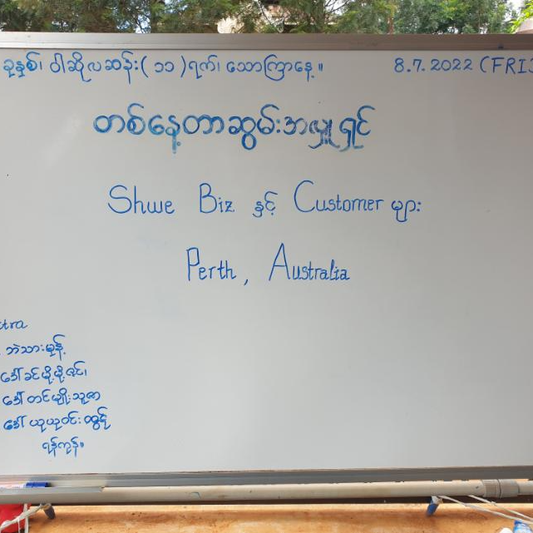 ခုနှစ်၊ ဝါဆိုလဆန်း(၁၁)ရက်၊ သောကြာနေ့။ 8.7.2022 (FRI
တစ်နေ့တာဆွမ်းအလှူရှင်
Shwe Biz နှင့် Customer များ
Perth, Australia
tra
ဘဲသားမုန့်
ဒေါ်ခင်မို့မို့ဇင်၊
ဒေါ်တင်မျိုးသူဇာ
ဒေါ်ယုယုဝင်း
ရန်ကုန်။